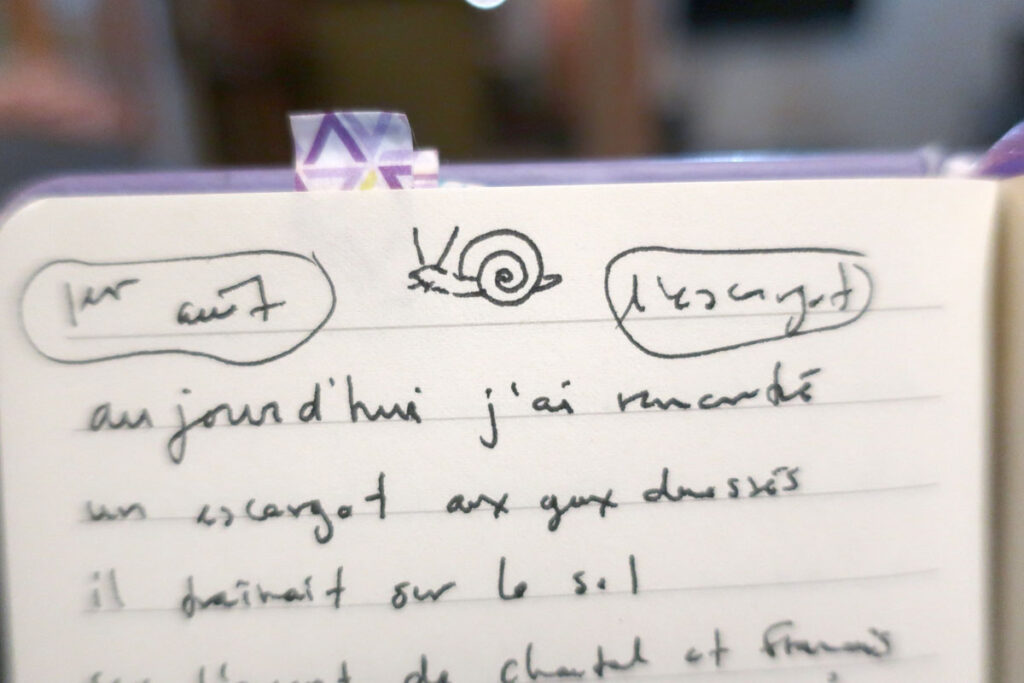 1er août l'escargot
aujourd'hui j'ai rencontré
un escargot aux yeux dressés
il traînait sur le sol
de chantal et François